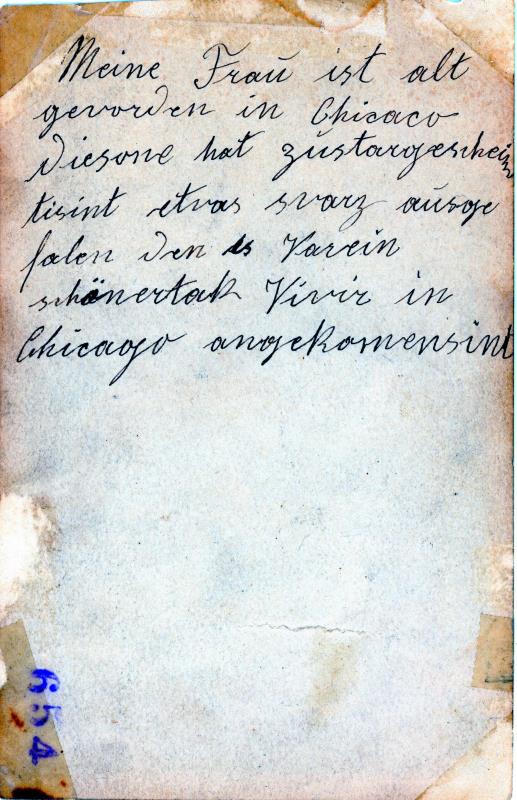 Meine Frau ist alt
gevorden in Chicaco
diesone hat zustargeschein
tisint etvas svarz ausge
falen den es Varein
schönertak Vivir in
Chicago angekomensint
654